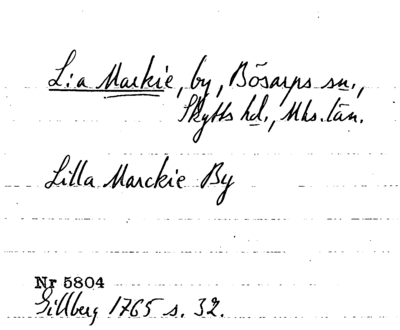 L:a Markie, by, Bösarps sn.,
Skytts hd., Mhs. län.
Lilla Marckie By
Nr 5804
Gillberg 1765 s. 32.